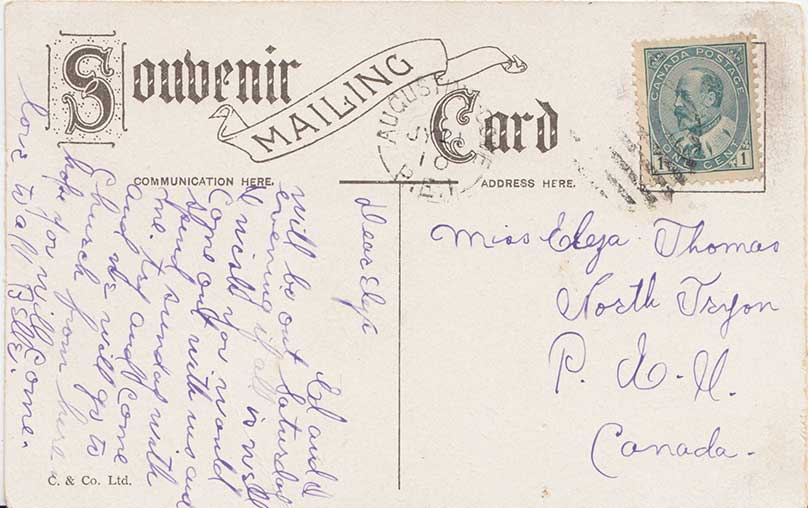 Souvenir
MAILING
Card
CANADA POSTAGE
1 ONE CENT 1
AUGUSTINE COVE
JY 21
10
P.E.I.
COMMUNICATION HERE.
ADDRESS HERE.
Dear Elga
Ed and I
will be out Saturday
evening if all is well
I wish you would
Come out with us and
spend sunday with
me. try and Come
and we will go to
Church from here
hope you will Come.
love to all Belle.
Miss Elga Thomas
North Tryon
P. E. I.
Canada.
C. & Co. Ltd.